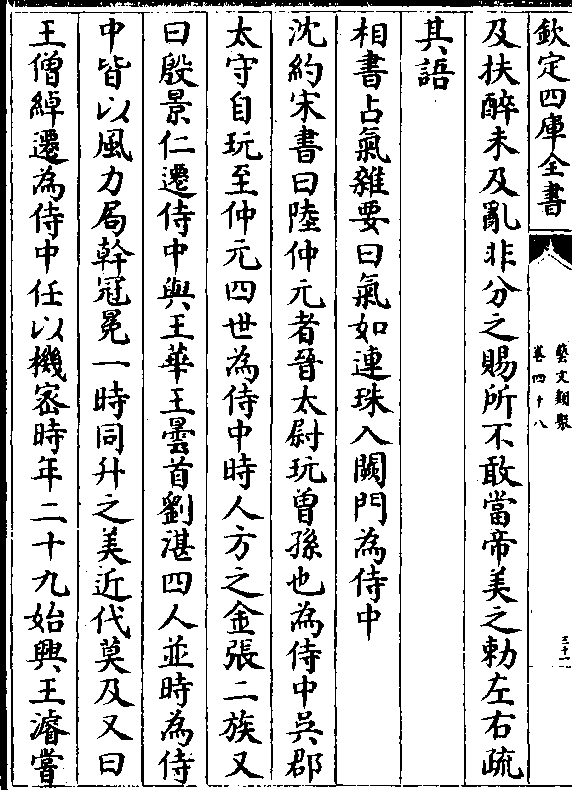 欽定四庫全書
藝文類聚
卷四十八
三十一
及扶醉未及亂非分之賜所不敢當帝美之勅左右疏
其語
相書占氣雜要曰氣如連珠入闕門為侍中
沈約宋書曰陸仲元者晉太尉玩曾孫也為侍中吳郡
太守自玩至仲元四世為侍中時人方之金張二族又
曰殷景仁遷侍中與王華王曇首劉湛四人並時為侍
中皆以風力局幹冠冕一時同升之美近代莫及又曰
王僧綽遷為侍中任以機密時年二十九始興王濬嘗